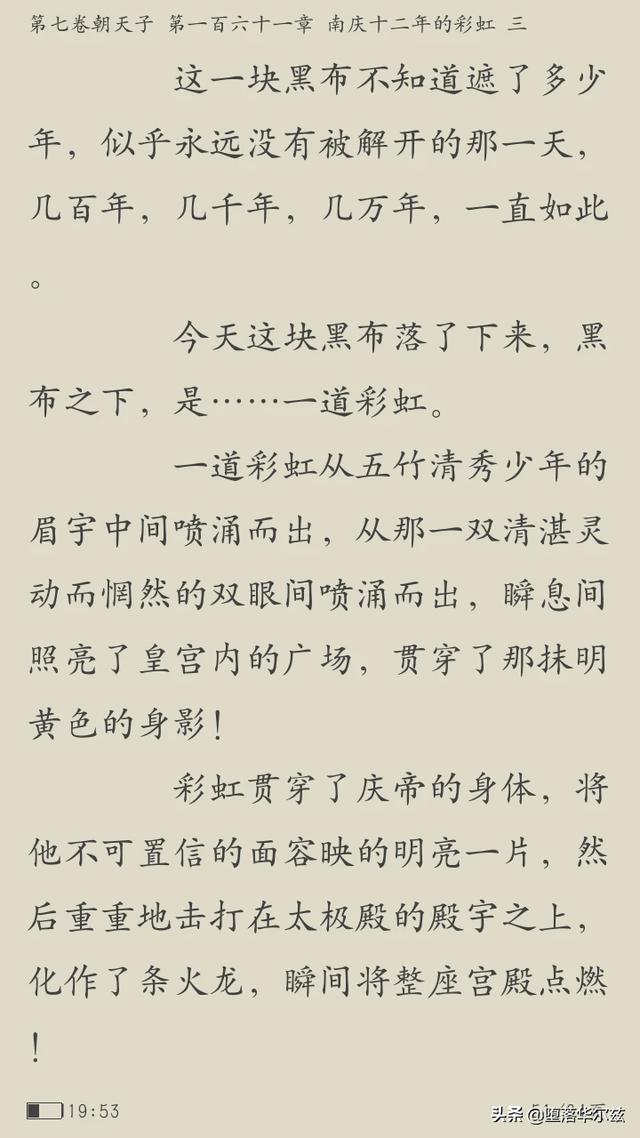 第七卷朝天子 第一百六十一章 南庆十二年的彩虹 三
这一块黑布不知道遮了多少
年，似乎永远没有被解开的那一天，
几百年，几千年，几万年，一直如此
。
今天这块黑布落了下来，黑
布之下，是……一道彩虹。
一道彩虹从五竹清秀少年的
眉宇中间喷涌而出，从那一双清湛灵
动而惘然的双眼间喷涌而出，瞬息间
照亮了皇宫内的广场，贯穿了那抹明
黄色的身影！
彩虹贯穿了庆帝的身体，将
他不可置信的面容映的明亮一片，然
后重重地击打在太极殿的殿宇之上，
化作了条火龙，瞬间将整座宫殿点燃
！
19:53
头条 @堕落华尔兹